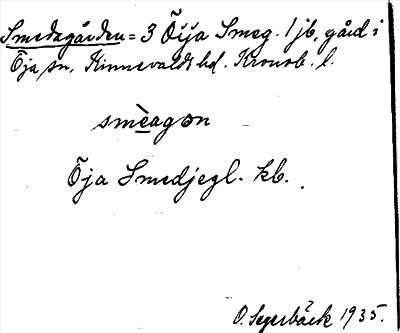 Smedagården = 3 Öija Smeg. 1 jb, gård i
Öja sn, Kinnevalds hd. Kronob. l.
smèagon
Öja Smedjegl. kb.
O. Segerbäck 1935.